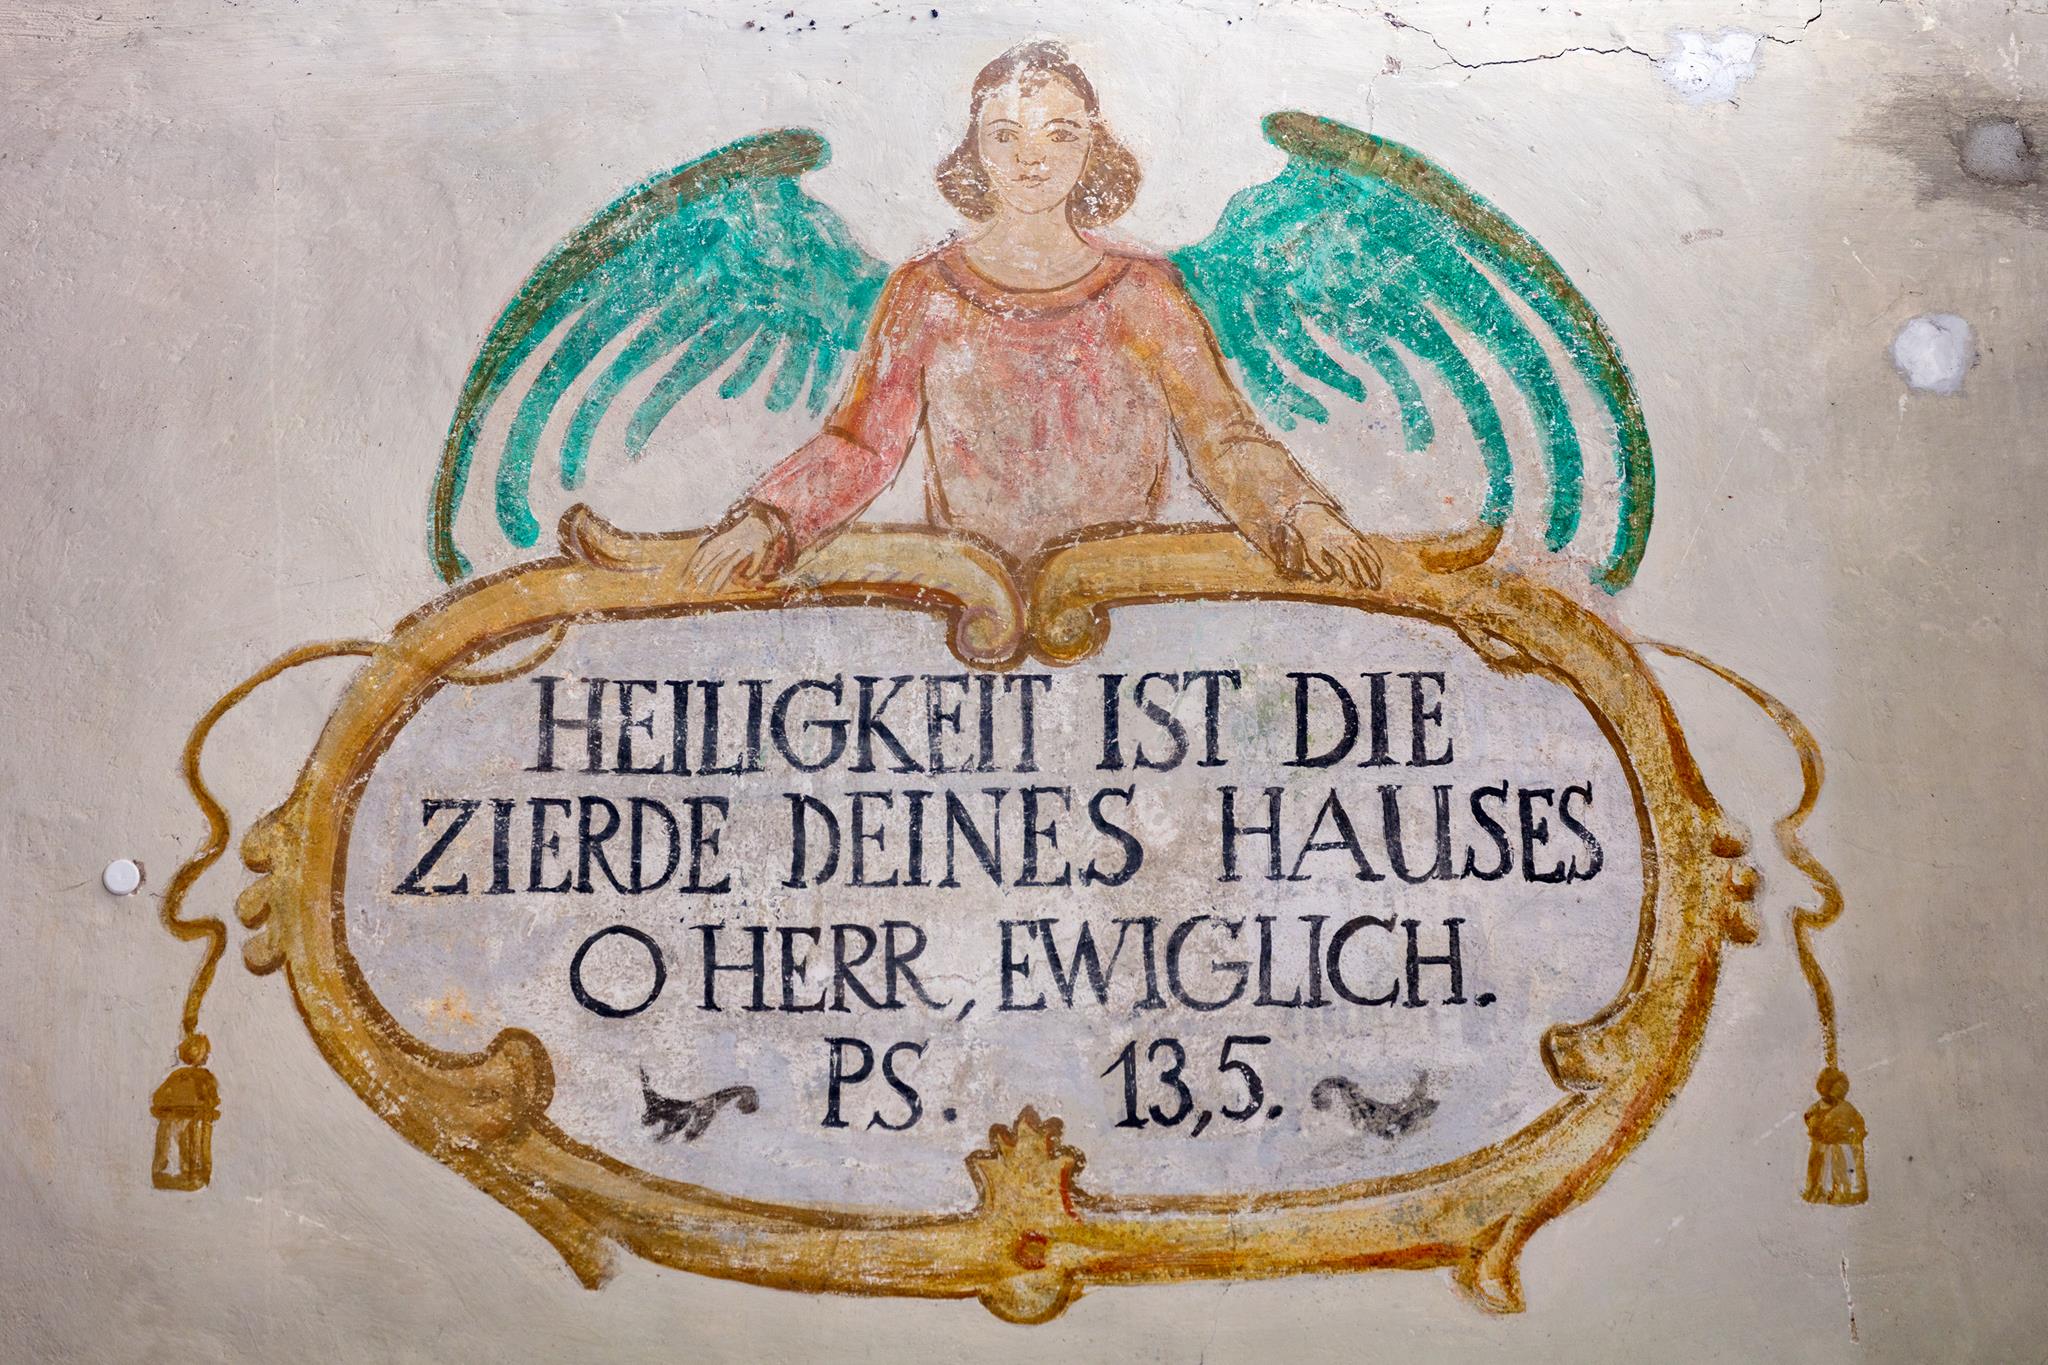 HEILIGKEIT IST DIE
ZIERDE DEINES HAUSES
O HERR, EWIGLICH.
PS. 13,5.